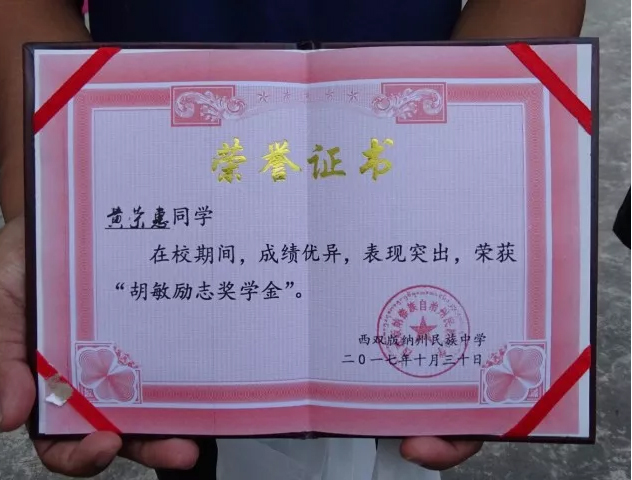 荣誉证书
黄荣惠同学
在校期间，成绩优异，表现突出，荣获
“胡敏励志奖学金”。
西双版纳州民族中学
二0一七年十月三十日